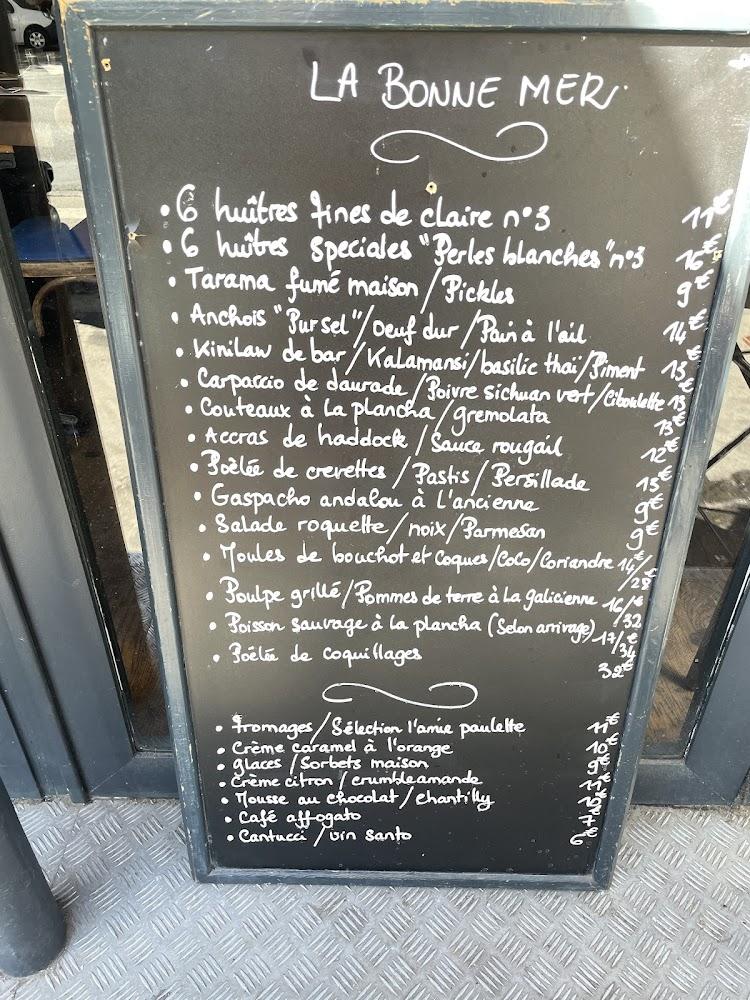 LA BONNE MER
• 6 huîtres fines de claire n°3 11€
• 6 huîtres speciales "Perles blanches" n°3 16€
• Tarama fumé maison / Pickles 9€
• Anchois "Pur sel" / Oeuf dur / Pain à l'ail 14€
• Kinilaw de bar / Kalamansi / basilic thaï / Piment 15€
• Carpaccio de daurade / Poivre sichuan vert / Ciboulette 13€
• Couteaux à la plancha / gremolata 13€
• Accras de haddock / Sauce rougail 12€
• Poêlée de crevettes / Pastis / Persillade 15€
• Gaspacho andalou à l'ancienne 9€
• Salade roquette / noix / Parmesan 9€
• Moules de bouchot et Coques / Coco / Coriandre 14/28€
• Poulpe grillé / Pommes de terre à la galicienne 16/32€
• Poisson sauvage à la plancha (Selon arrivage) 17/34€
• Poêlée de coquillages 32€
• fromages / Sélection l'amie paulette 11€
• Crème caramel à l'orange 10€
• glaces / Sorbets maison 9€
• Crème citron / crumble amande
• Mousse au chocolat / chantilly
• Café affogato
• Cantucci / vin santo